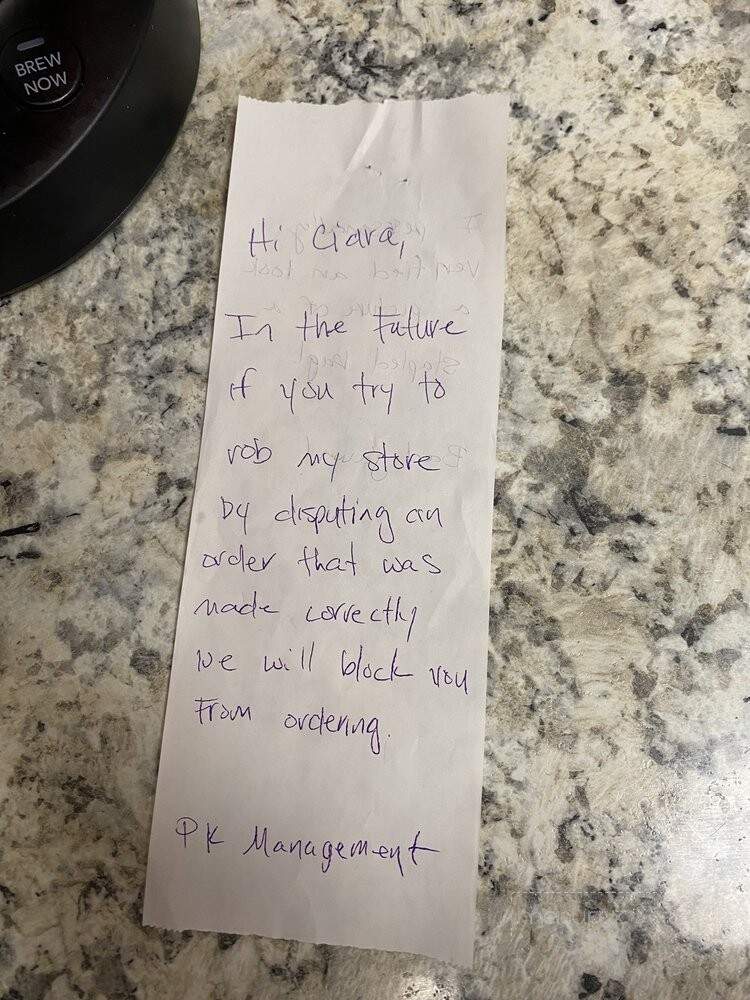 BREW
NOW
Hi Ciara,
In the Future
if you try to
rob my store
by disputing an
order that was
made correctly
we will block you
From ordering.
PK Management